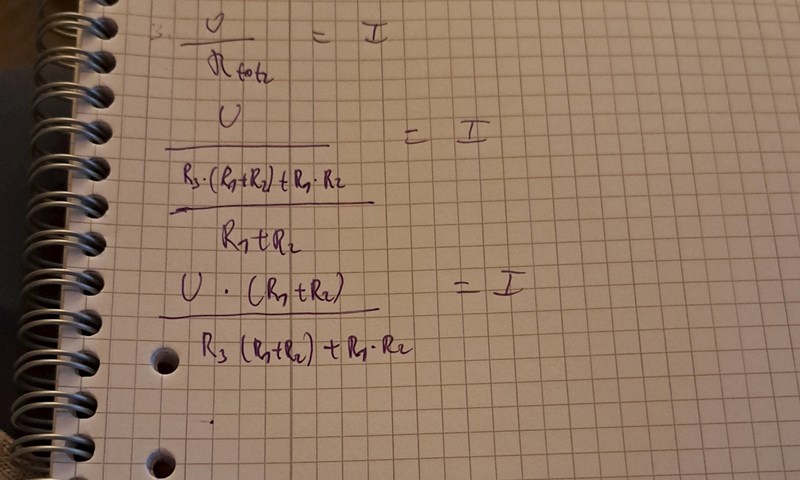 3. U / R tot2 = I
U / ((R3·(R1+R2)+R1·R2) / (R1+R2)) = I
U · (R1+R2) / (R3 (R1+R2) + R1·R2) = I